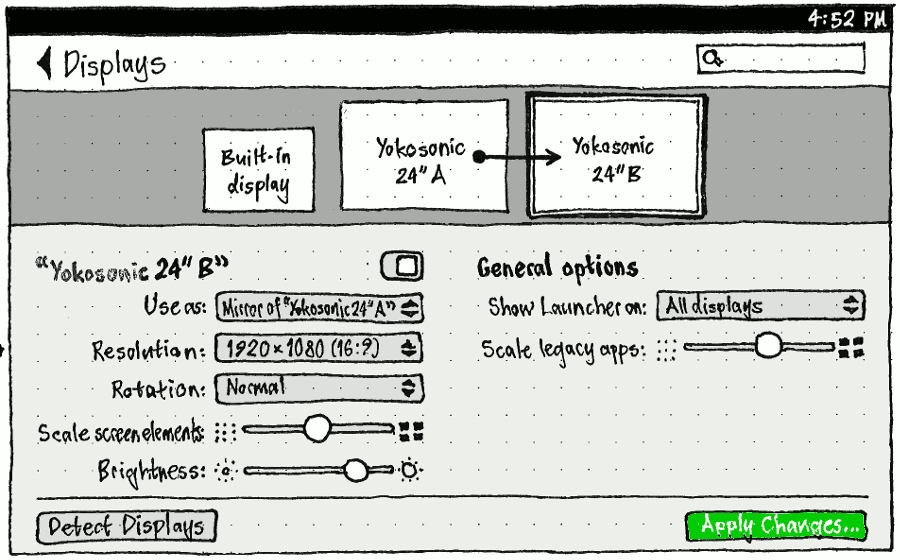 4:52 PM
Displays
Built-in
display
Yokosonic
24" A
Yokosonic
24" B
"Yokosonic 24" B"
Use as: Mirror of "Yokosonic 24" A"
Resolution: 1920 × 1080 (16:9)
Rotation: Normal
Scale screen elements:
Brightness:
General options
Show Launcher on: All displays
Scale legacy apps:
Detect Displays
Apply Changes...